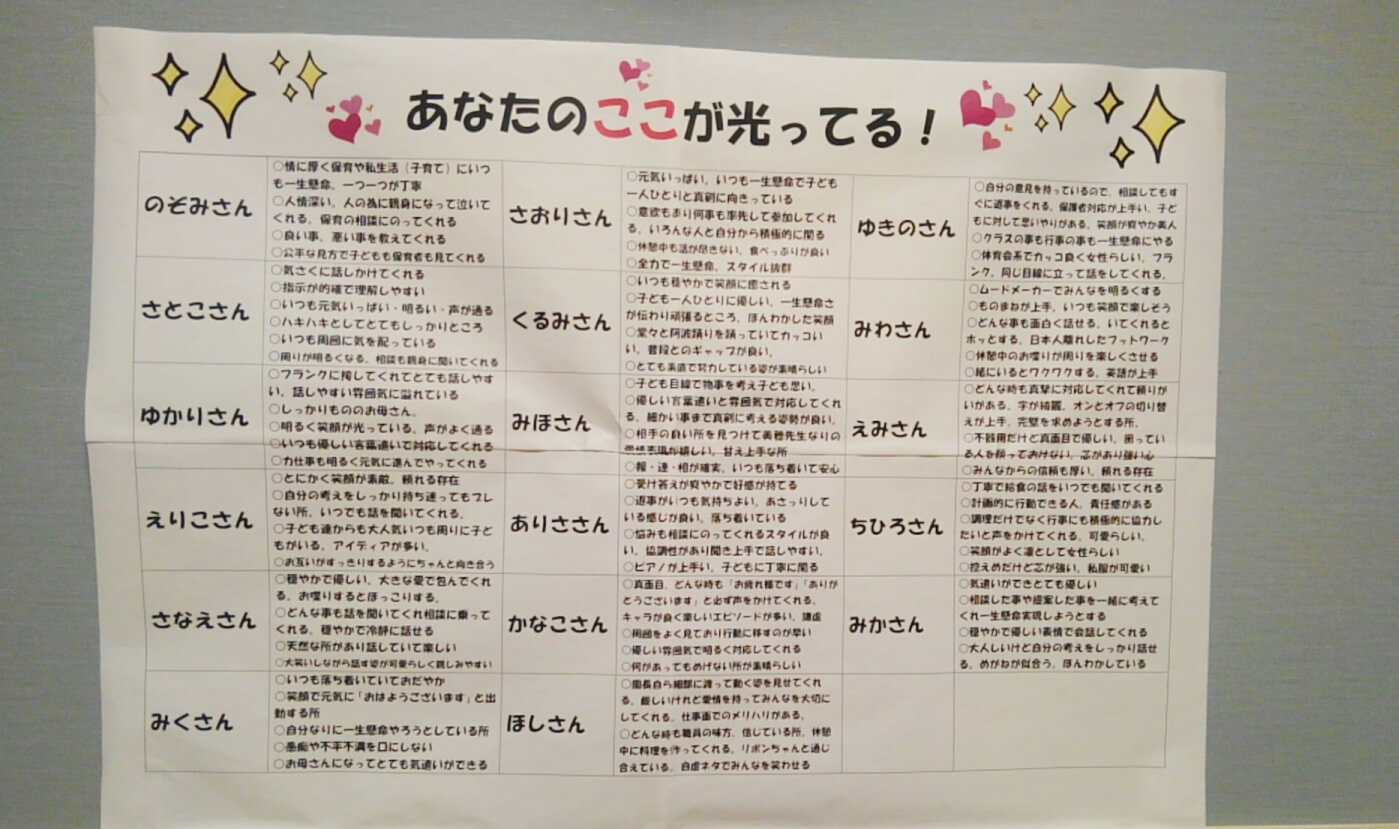 あなたのここが光ってる！
のぞみさん
○情に厚く保育や私生活（子育て）にいつ
も一生懸命、一つ一つが丁寧
○人情深い、人の為に親身になって泣いて
くれる、保育の相談にのってくれる
○良い事、悪い事を教えてくれる
○公平な見方で子どもも保育者も見てくれる
さおりさん
○元気いっぱい、いつも一生懸命で子ども
一人ひとりと真剣に向きっている
○意欲もあり何事も率先して参加してくれ
る、いろんな人と自分から積極的に関る
○休憩中も話が尽きない、食べっぷりが良い
○全力で一生懸命、スタイル抜群
ゆきのさん
○自分の意見を持っているので、相談してもす
ぐに返事をくれる、保護者対応が上手い、子ど
もに対して思いやりがある、笑顔が爽やか美人
○クラスの事も行事の事も一生懸命にやる
○体育会系でカッコ良く女性らしい、フラ
ンク、同じ目線に立って話をしてくれる、
さとこさん
○気さくに話しかけてくれる
○指示が的確で理解しやすい
○いつも元気いっぱい・明るい・声が通る
○ハキハキとしてとてもしっかりところ
○いつも周囲に気を配っている
○周りが明るくなる、相談も親身に聞いてくれる
くるみさん
○いつも穏やかで笑顔に癒される
○子ども一人ひとりに優しい、一生懸命さ
が伝わり頑張るところ、ほんわかした笑顔
○堂々と阿波踊りを踊っていてカッコい
い、普段とのギャップが良い、
○とても素直で努力している姿が素晴らしい
みわさん
○ムードメーカーでみんなを明るくする
○ものまねが上手、いつも笑顔で楽しそう
○どんな事も面白く話せる、いてくれると
ホッとする、日本人離れしたフットワーク
○休憩中のお喋りが周りを楽しくさせる
○一緒にいるとワクワクする、英語が上手
ゆかりさん
○フランクに接してくれてとても話しやす
い、話しやすい雰囲気に溢れている
○しっかりもののお母さん、
○明るく笑顔が光っている、声がよく通る
○いつも優しい言葉遣いで対応してくれる
○力仕事も明るく元気に進んでやってくれる
みほさん
○子ども目線で物事を考え子ども思い、
○優しい言葉遣いと雰囲気で対応してくれ
る、細かい事まで真剣に考える姿勢が良い、
○相手の良い所を見つけて美穂先生なりの
愛情表現が嬉しい、甘え上手な所
えみさん
○どんな時も真摯に対応してくれて頼りが
いがある、字が綺麗、オンとオフの切り替
えが上手、完璧を求めようとする所、
○不器用だけど真面目で優しい、困ってい
る人を放っておけない、芯があり強い心
○みんなからの信頼も厚い、頼れる存在
えりこさん
○とにかく笑顔が素敵、頼れる存在
○自分の考えをしっかり持ち迷ってもブレ
ない所、いつでも話を聞いてくれる、
○子ども達からも大人気いつも周りに子ど
もがいる、アイディアが多い、
○お互いがすっきりするようにちゃんと向き合う
ありささん
○報・連・相が確実、いつも落ち着いて安心
○受け答えが爽やかで好感が持てる
○返事がいつも気持ちよい、あさっりして
いる感じが良い、落ち着いている
○悩みも相談にのってくれるスタイルが良
い、協調性があり聞き上手で話しやすい、
○ピアノが上手い、子どもに丁寧に関る
ちひろさん
○丁寧で給食の話をいつでも聞いてくれる
○計画的に行動できる人、責任感がある
○調理だけでなく行事にも積極的に協力し
たいと声をかけてくれる、可愛らしい、
○笑顔がよく凛として女性らしい
○控えめだけど芯が強い、私服が可愛い
さなえさん
○穏やかで優しい、大きな愛で包んでくれ
る、お喋りするとほっこりする、
○どんな事も話を聞いてくれ相談に乗って
くれる、穏やかで冷静に話せる
○天然な所があり話していて楽しい
○大笑いしながら話す姿が可愛らしく親しみやすい
かなこさん
○真面目、どんな時も「お疲れ様です」「ありが
とうございます」と必ず声をかけてくれる、
キャラが良く楽しいエピソードが多い、謙虚
○周囲をよく見ており行動に移すのが早い
○優しい雰囲気で明るく対応してくれる
○何があってもめげない所が素晴らしい
みかさん
○気遣いができとても優しい
○相談した事や提案した事を一緒に考えて
くれ一生懸命実現しようとする
○穏やかで優しい表情で会話してくれる
○大人しいけど自分の考えをしっかり話せ
る、めがねが似合う、ほんわかしている
みくさん
○いつも落ち着いていておだやか
○笑顔で元気に「おはようございます」と出
勤する所
○自分なりに一生懸命やろうとしている所
○愚痴や不平不満を口にしない
○お母さんになってとても気遣いができる
ほしさん
○園長自ら細部に渡って動く姿を見せてくれ
る、厳しいけれど愛情を持ってみんなを大切に
してくれる、仕事面でのメリハリがある、
○どんな時も職員の味方、信じている所、休憩
中に料理を作ってくれる、リボンちゃんと通じ
合えている、自虐ネタでみんなを笑わせる